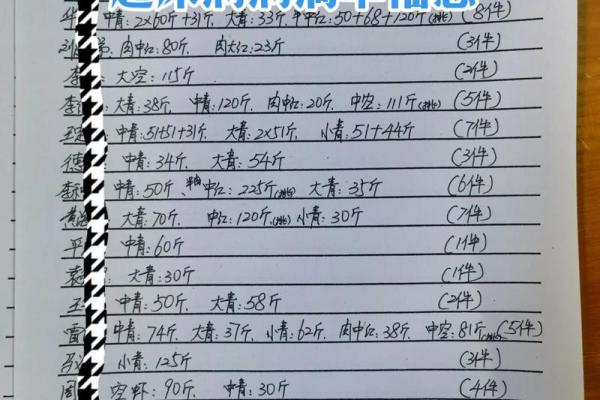 华 中青:2x60斤+31斤, 大青:33斤 中红:50+68+120斤 (8件)
刘 弟, 肉中红:80斤, 肉大红:23斤 (3件)
李 大空:115斤 (2件)
李 大青:38斤, 中青:120斤, 肉中红:20斤, 中空:111斤 (5件)
中青:51+51+31斤, 大青:2x51斤, 小青:51+44斤 (7件)
德 中青:34斤, 大青:54斤 (3件)
李 中青:50斤、中红:225斤 大青:35斤 (6件)
黄 大青:70斤, 中红:120斤 小青:30斤 (7件)
平 中青:60斤 (1件)
袁 大青:30斤 (1件)
王 中青:50斤, 大青:58斤 (2件)
雷 中青:74斤, 大青:37斤, 小青:62斤, 肉中红:38斤, 中空:81斤 (5件)
马 小青:125斤 (3件)
周 空虾:90斤, 中青:30斤 (4件)